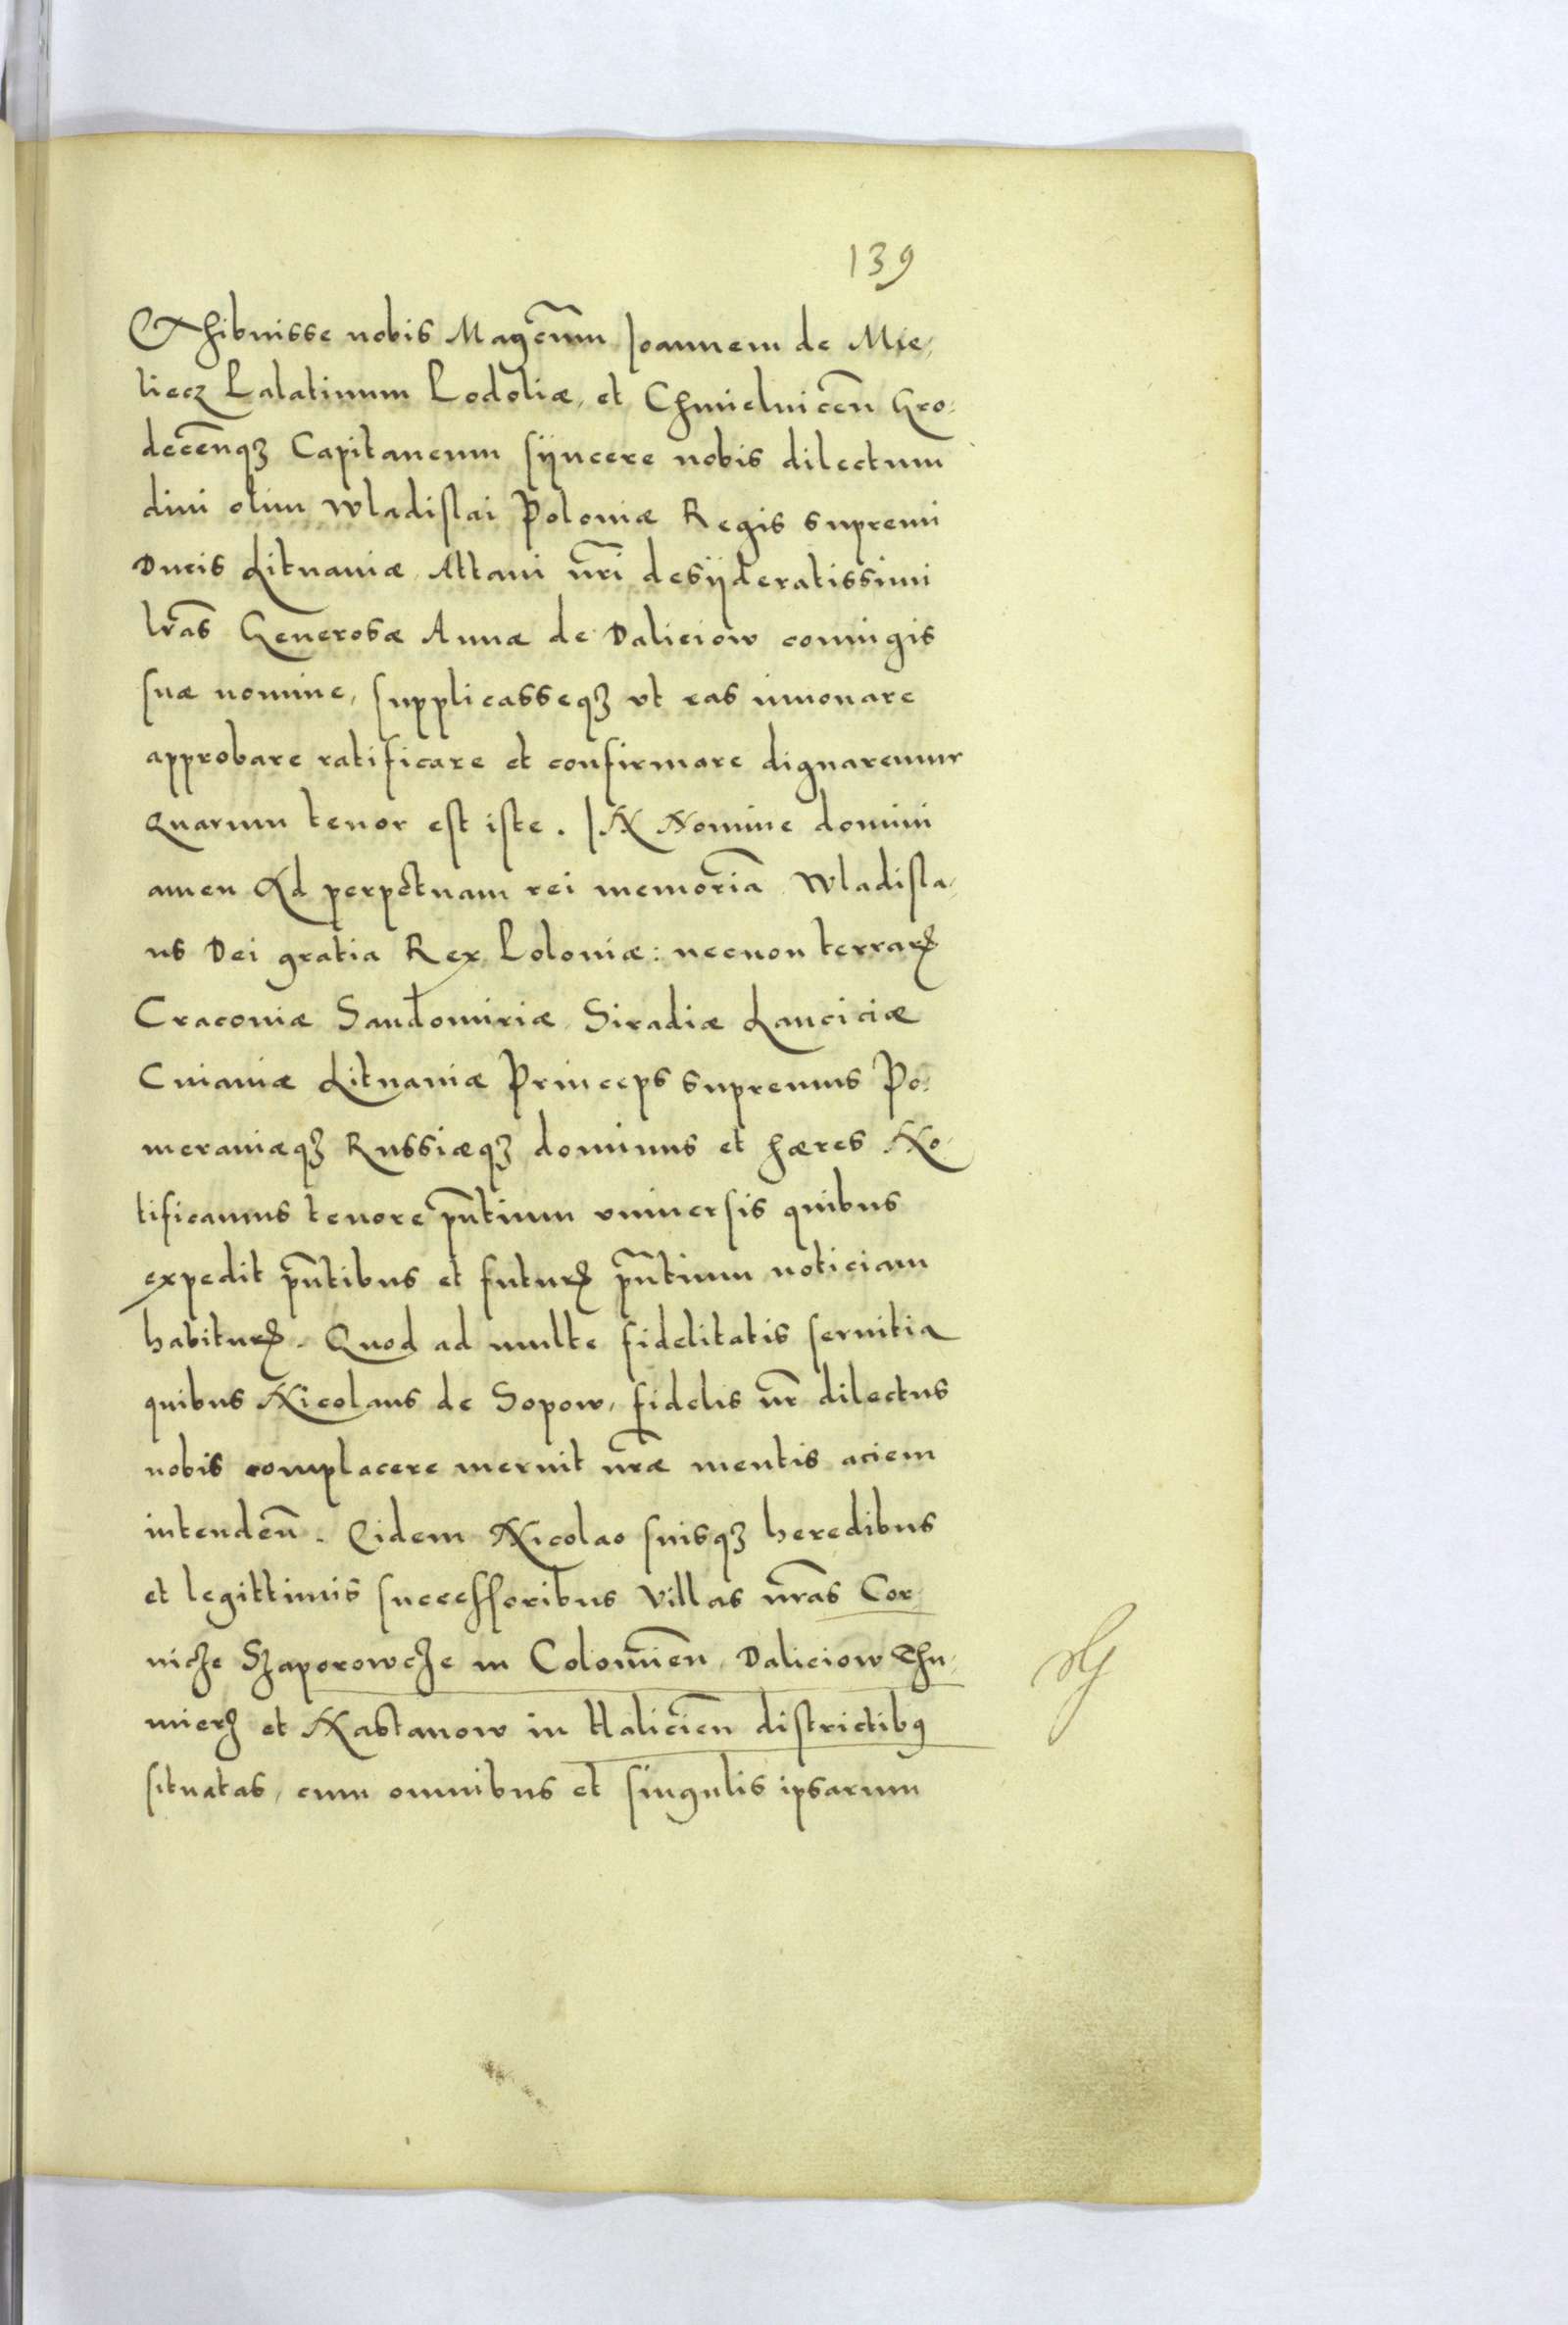 139
Exhibuisse nobis Magcum̃ Joannem de Mie,
liecz Palatinum Podoliæ, et Chmielnicen̄ Gro:
decen̄qꝫ Capitaneum sÿncere nobis dilectum
diui olim Wladislai Poloniæ Regis supremi
Ducis Lituaniæ Attaui nr̃i desÿderatissimi
lr̃as Generosæ Annæ de Daliciow coniugis
suæ nomine, supplicasseqꝫ vt eas innouare
approbare ratificare et confirmare dignaremur
Quarum tenor est iste. IN Nomine domini
amen Ad perpetuam rei memoriã Wladisla,
us Dei gratia Rex Poloniæ: necnon terraꝝ
Cracoviæ Sandomiriæ Siradiæ Lanciciæ
Cuiauiæ Lituaniæ Princeps supremus Po:
meraniæqꝫ Russiæqꝫ dominus et hæres No,
tificamus tenore pn̄tium vniuersis quibus
expedit pn̄tibus et futuꝝ pn̄tium noticiam
habituꝝ. Quod ad multe fidelitatis seruitia
quibus Nicolaus de Sopow, fidelis nr̄ dilectus
nobis complacere meruit nr̃æ mentis aciem
intenden̄. Eidem Nicolao suisqꝫ heredibus
et legittimis successoribus Villas nr̃as Cor,
nicze Szaporowcze in Colomien̄, Daliciow Thu,
mierz et Nastanow in Halicien̄ districtibꝰ
situatas, cum omnibus et singulis ipsarum